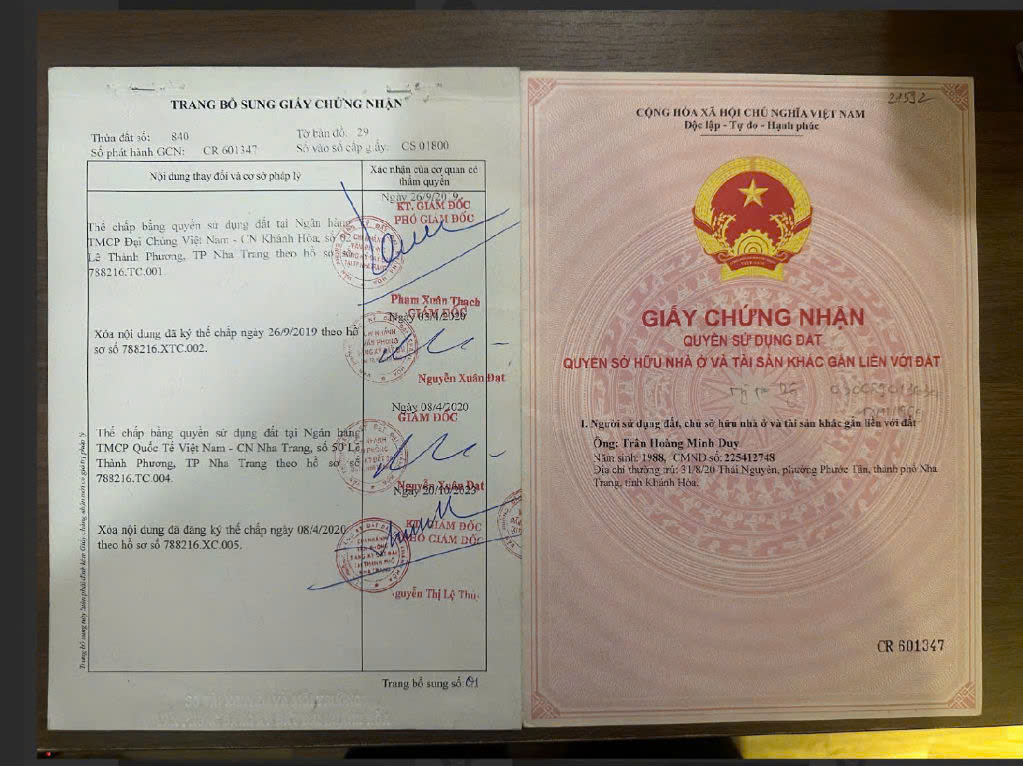 TRANG BỔ SUNG GIẤY CHỨNG NHẬN
Thửa đất số: 840
Tờ bản đồ: 29
Số phát hành GCN: CR 601347
Số vào sổ cấp giấy: CS 01800
Nội dung thay đổi và cơ sở pháp lý
Xác nhận của cơ quan có
thẩm quyền
Thế chấp bằng quyền sử dụng đất tại Ngân hàng
TMCP Đại Chúng Việt Nam - CN Khánh Hòa, số 02
Lê Thành Phương, TP Nha Trang theo hồ sơ số
788216.TC.001.
Ngày 26/9/2019
KT. GIÁM ĐỐC
PHÓ GIÁM ĐỐC
Phạm Xuân Thạch
Xóa nội dung đã ký thế chấp ngày 26/9/2019 theo hồ
sơ số 788216.XTC.002.
Ngày 03/4/2020
GIÁM ĐỐC
Nguyễn Xuân Đạt
Thế chấp bằng quyền sử dụng đất tại Ngân hàng
TMCP Quốc Tế Việt Nam - CN Nha Trang, số 50 Lê
Thành Phương, TP Nha Trang theo hồ sơ số
788216.TC.004.
Ngày 08/4/2020
GIÁM ĐỐC
Nguyễn Xuân Đạt
Xóa nội dung đã đăng ký thế chấp ngày 08/4/2020
theo hồ sơ số 788216.XC.005.
Ngày 20/10/2023
KT. GIÁM ĐỐC
PHÓ GIÁM ĐỐC
Nguyễn Thị Lệ Thu
Trang bổ sung này luôn phải đính kèm Giấy chứng nhận mới có giá trị pháp lý
Trang bổ sung số: 01
21592
CỘNG HÒA XÃ HỘI CHỦ NGHĨA VIỆT NAM
Độc lập - Tự do - Hạnh phúc
GIẤY CHỨNG NHẬN
QUYỀN SỬ DỤNG ĐẤT
QUYỀN SỞ HỮU NHÀ Ở VÀ TÀI SẢN KHÁC GẮN LIỀN VỚI ĐẤT
I. Người sử dụng đất, chủ sở hữu nhà ở và tài sản khác gắn liền với đất
Ông: Trần Hoàng Minh Duy
Năm sinh: 1988, CMND số: 225412748
Địa chỉ thường trú: 31/8/20 Thái Nguyên, phường Phước Tân, thành phố Nha
Trang, tỉnh Khánh Hòa.
CR 601347